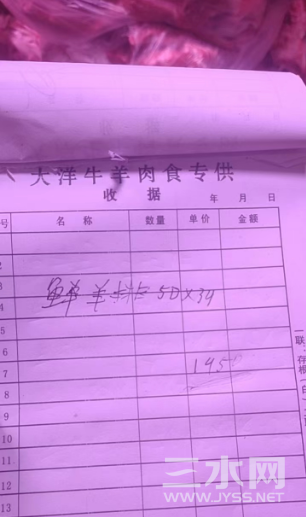 大洋牛羊肉食专供
收 据
年 月 日
号 名 称 数量 单价 金额
2
3
鲜羊排 50×39
4
5
6
7 195
8
9
10
11
12
13
联
存根
三水网
WWW.JYSS.NET